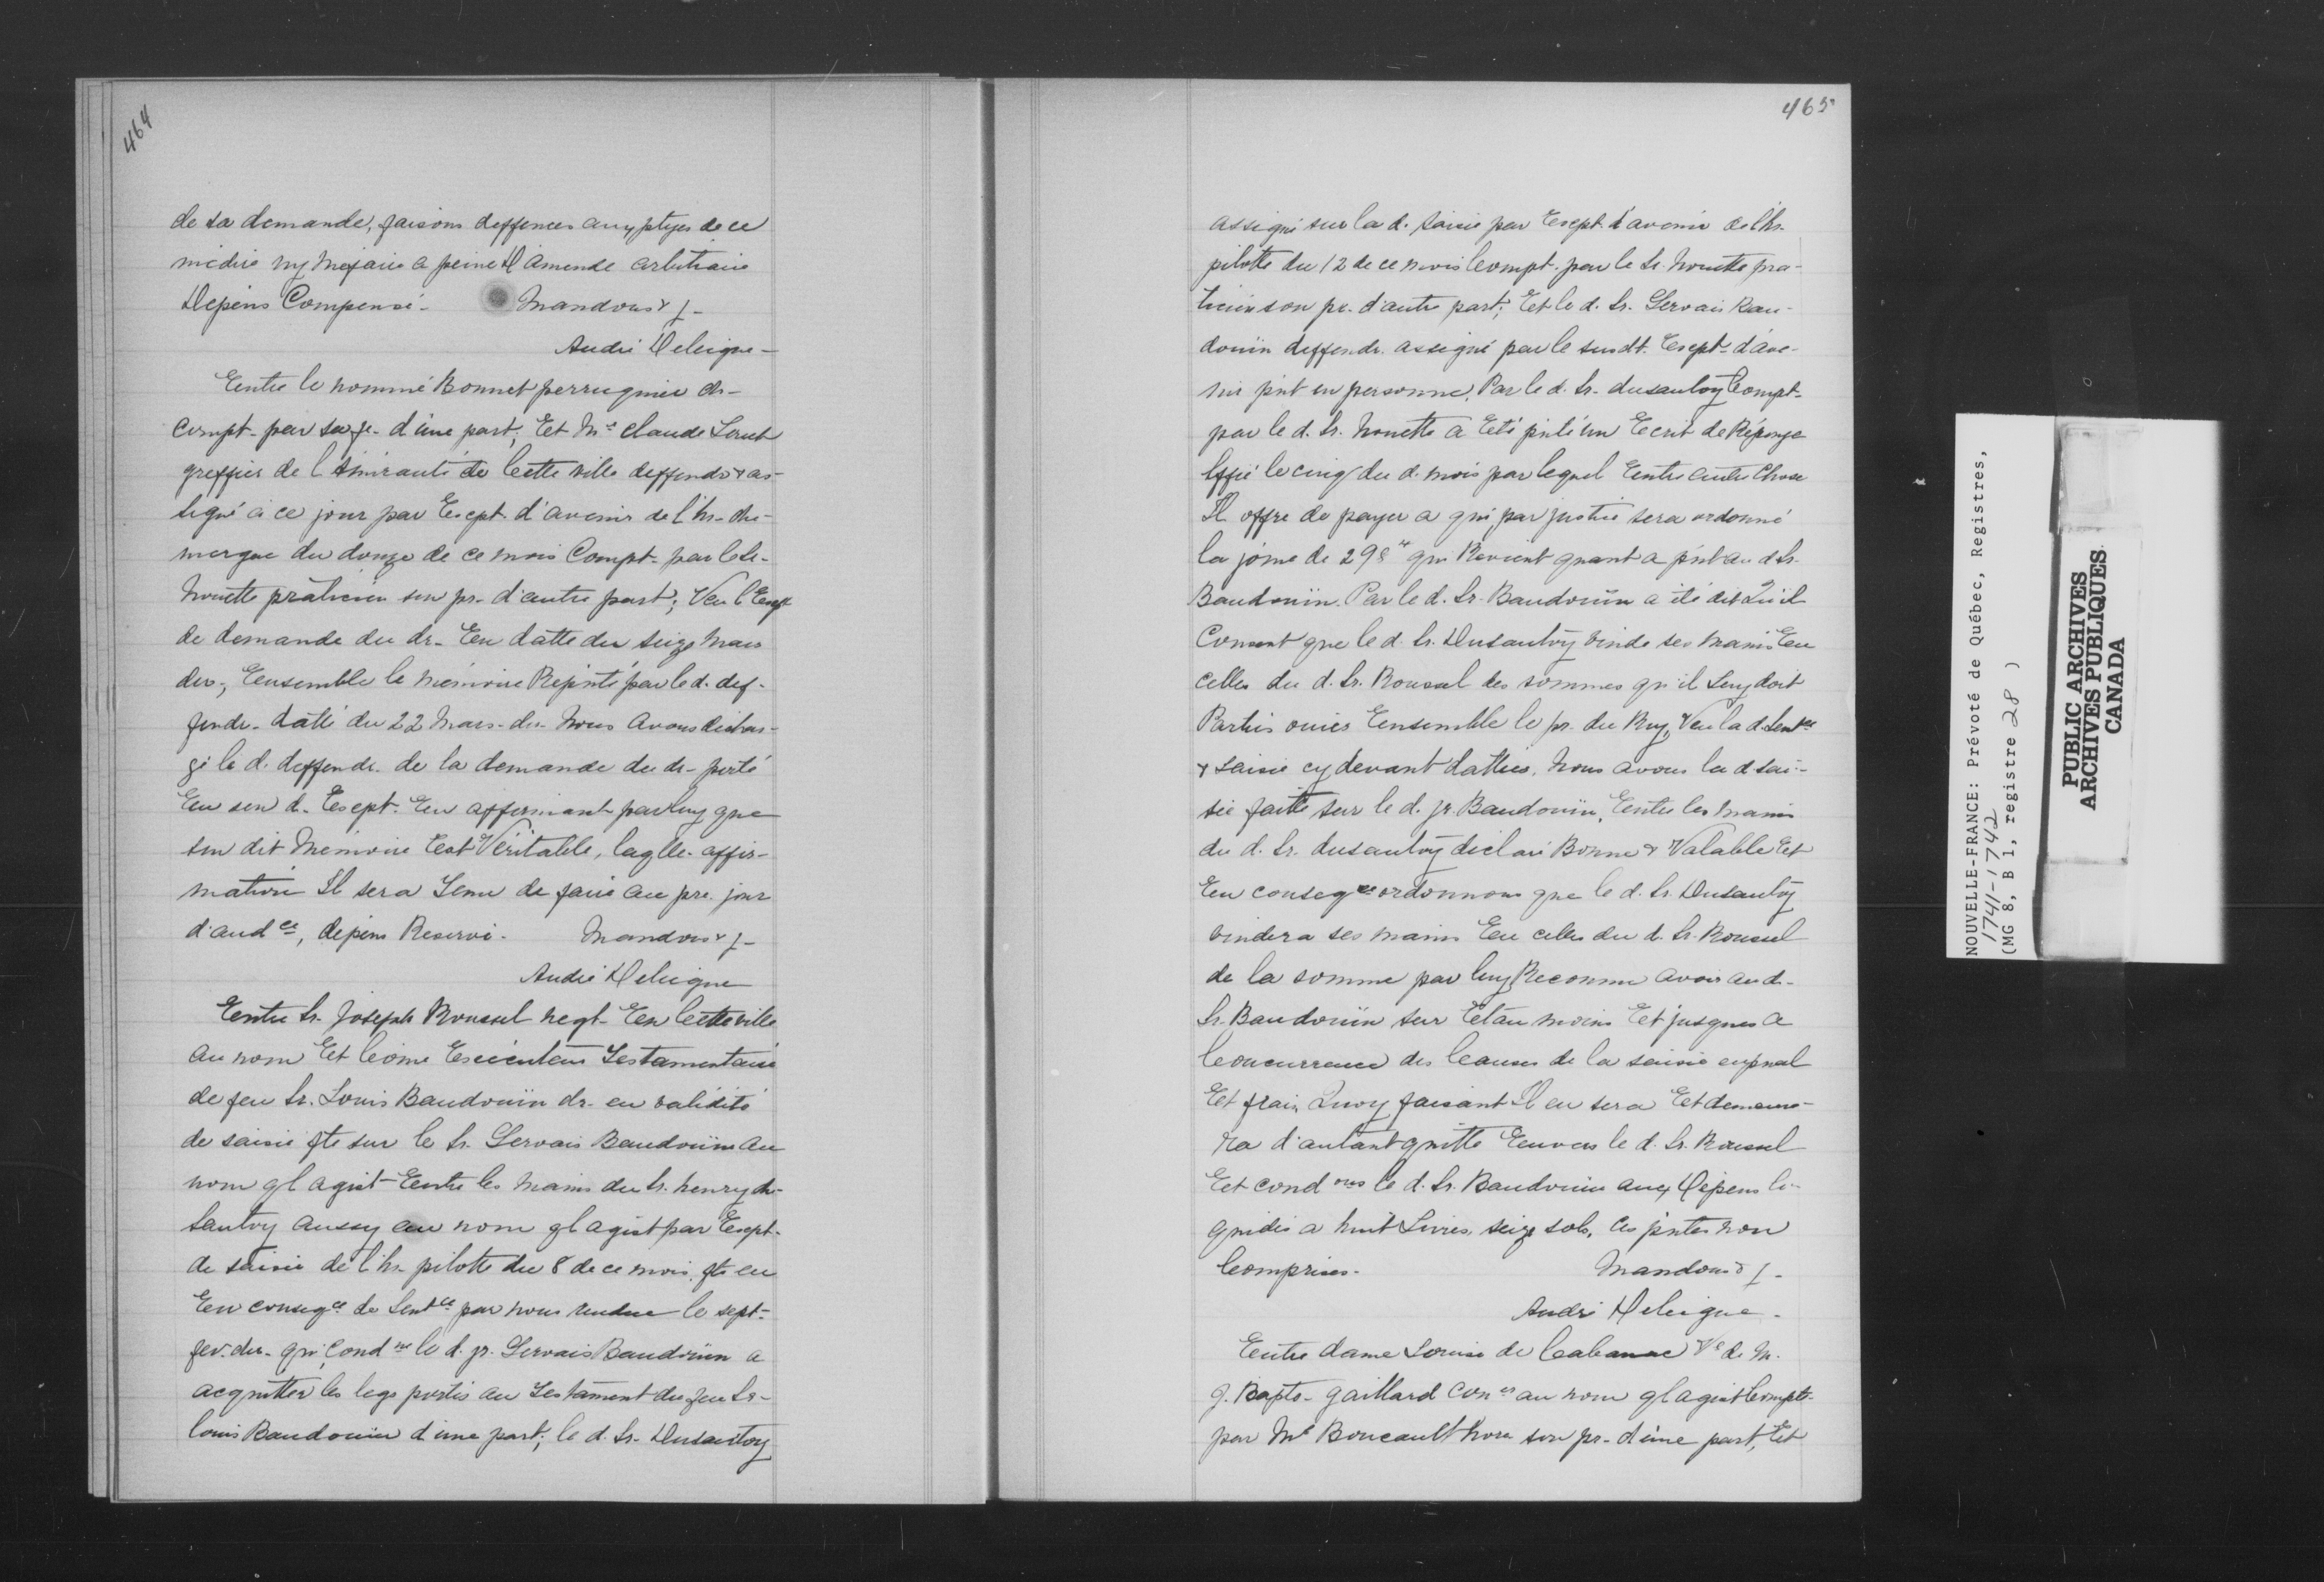 464
de sa demande, faisons deffences aux ptyes de ce
médire ny mefaire a peine D'amende arbitraire
Dépens Compensé. Mandons & f.
André Deleigne
Entre le nommé Bonnet perruquier dr.
compt. par sa fe. d'une part; Et Me. Claude Louet
greffier de l'Amirauté de Cette ville deffendr & as-
signé à ce jour par Exept. d'avenir de l'hr. du
du douze de ce mois Compt. par le Sr.
Nouette praticien son pr. d'autre part; Veu l'Exept
de demande du dr. En datte du seize Mars
der., Ensemble le mémoire Repnté par le d. def-
fendr. datté du 22 Mars dr. Nous avons déchar-
gé le d. deffendr. de la demande du dr. porté
En son d. Exept. En affirmant par luy que
son dit Mémoire Est Véritable, laqlle. affir-
mation Il sera Tenu de faire au pre. jour
d'audce, dépens Reservé. Mandons & f.
André Deleigne
Entre Sr. Joseph Roussel negt. En Cette ville
au nom Et Côme Exécuteur Testamentaire
de feu Sr. Louis Baudouin dr. en validité
de saisie fte sur le Sr. Gervais Baudouin au
nom ql agist Entre les mains du Sr. henry du
Sautoy aussy au nom ql agist par Exept.
de saisie de l'hr. pilotte du 8 de ce mois fte en
En conseqce de Sentce par nous rendue le sept.
fev. der. qui Condne le d. sr. Gervais Baudouin a
acquitter les legs portés au Testament du feu Sr.
Louis Baudouin d'une part; le d. Sr. Dusautoy
465
assigné sur la d. saisie par Exept. d'avenir de l'hr.
pilotte du 12 de ce mois Compt. par le Sr. Nouette pra-
ticien son pr. d'autre part; Et le d. Sr. Gervais Bau-
douin deffendr. assigné par le susdt. Exept. d'ave-
nir pnt en personne. Par le d. Sr. dusautoy Compt.
par le d. Sr. Nouette a Eté pnté un Ecrit de Réponse
Sffié le cinq du d. mois par lequel Entre autre Chose
Il offre de payer a qui par justice sera ordonné
la sôme de 298 # qui Revient quant a pnt au d Sr.
Baudouin. Par le d. Sr. Baudouin a été dit Qu'il
Consent que le d. Sr. Dusautoy vinde ses mains En
celles du d. Sr. Roussel des sommes qu'il Luy doit
Parties ouies Ensemble le pr. du Roy, Veu la d. Sentce
& saisie cy devant dattées. Nous avons la d sai-
sie faitte sur le d. sr. Baudouin, Entre les mains
du d. Sr. dusautoy déclaré Bonne & Valable Et
En conseqce ordonnons que le d. Sr. Dusautoy
vindera ses mains En celles du d. Sr. Roussel
de la somme par luy Reconnu avoir au d.
Sr. Baudouin sur Et au moins Et jusques a
Concurrence des Causes de la saisie en pnal
Et frais, Quoy faisant Il en sera Et demeure-
ra d'autant quitte Envers le d. Sr. Roussel
Et condons le d. Sr. Baudouin aux Dépens li-
quidés a huit Livres, seize sols, Ces pntes non
Comprises. Mandons & f.
André Deleigne.
Entre dame Louise de Cabanac Ve de M.
J. Bapte. gaillard coner au nom ql agist Compte.
par Me Boucault Nore son pr. d'une part, Et
NOUVELLE-FRANCE: Prévoté de Québec, Registres,
1741-1742
(MG 8, B 1, registre 28 )
PUBLIC ARCHIVES
ARCHIVES PUBLIQUES
CANADA